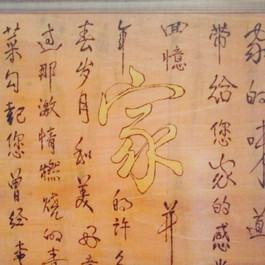 家的味道
带给您家的感觉
回憶 羊
家
年 的许多
春岁月和美好
过那激情燃烧的青
菜勾起您曾经